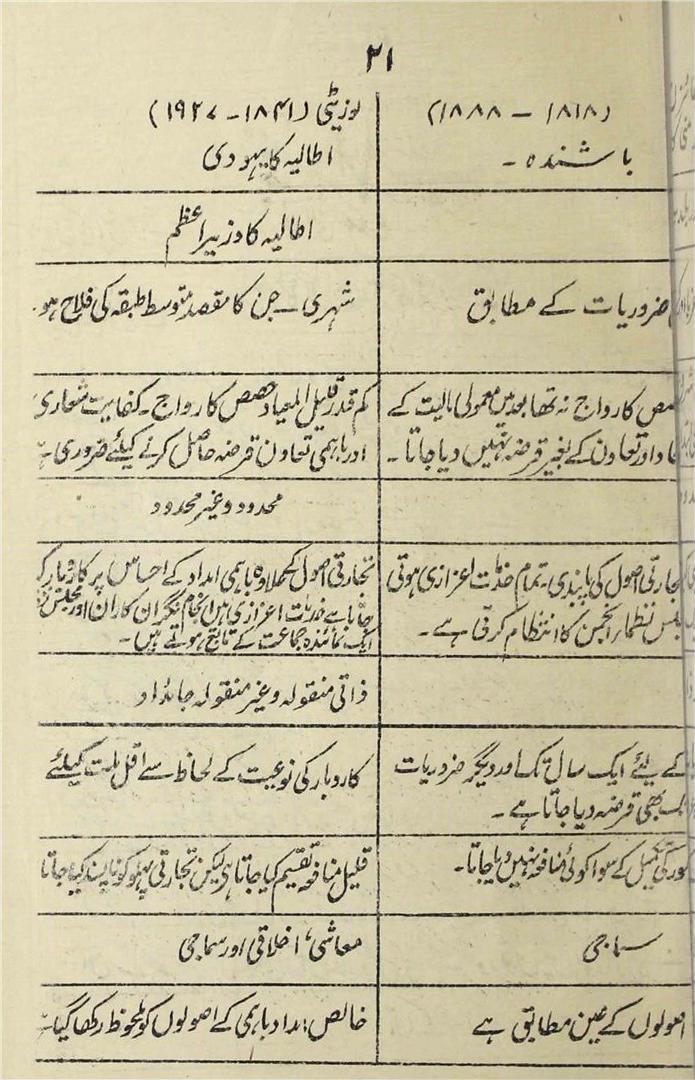 ۲۱
(۱۸۱۸ – ۱۸۸۸)
باشندہ -
ضروریات کے مطابق
حصص کا رواج نہ تھا بعد میں معمولی مالیت کے
اور تعاون کے بغیر قرضہ نہیں دیا جاتا -
تجارتی اصول کی پابندی - تمام خدمات اعزازی ہوتی
مجلس نظما انجمن کا انتظام کرتی ہے -
کے لئے ایک سال تک اور دیگر ضروریات
بھی قرضہ دیا جاتا ہے -
کی تکمیل کے سوا کوئی منافعہ نہیں دیا جاتا -
سماجی
اصولوں کے عین مطابق ہے
لوزیٹی (۱۸۴۱ - ۱۹۲۷)
اطالیہ کا یہودی
اطالیہ کا وزیر اعظم
شہری - جن کا مقصد متوسط طبقہ کی فلاح ہو
کم قدر قلیل المیعاد حصص کا رواج - کفایت شعاری
اور باہمی تعاون قرضہ حاصل کرنے کیلئے ضروری ہے
محدود و غیر محدود
تجارتی اصول کے علاوہ باہمی امداد کے احساس پر کاروبار
جاتا ہے خدمات اعزازی ہیں انجام نگران کاران اور مجلس
ایک نمائندہ جماعت کے تابع ہوتے ہیں -
ذاتی منقولہ و غیر منقولہ جائداد
کاروبار کی نوعیت کے لحاظ سے اقل مدت کیلئے
قلیل منافعہ تقسیم کیا جاتا ہی لیکن تجارتی پہلو کو ناپسند کیا جاتا
معاشی، اخلاقی اور سماجی
خالص امداد باہمی کے اصولوں کو ملحوظ رکھا گیا ہے